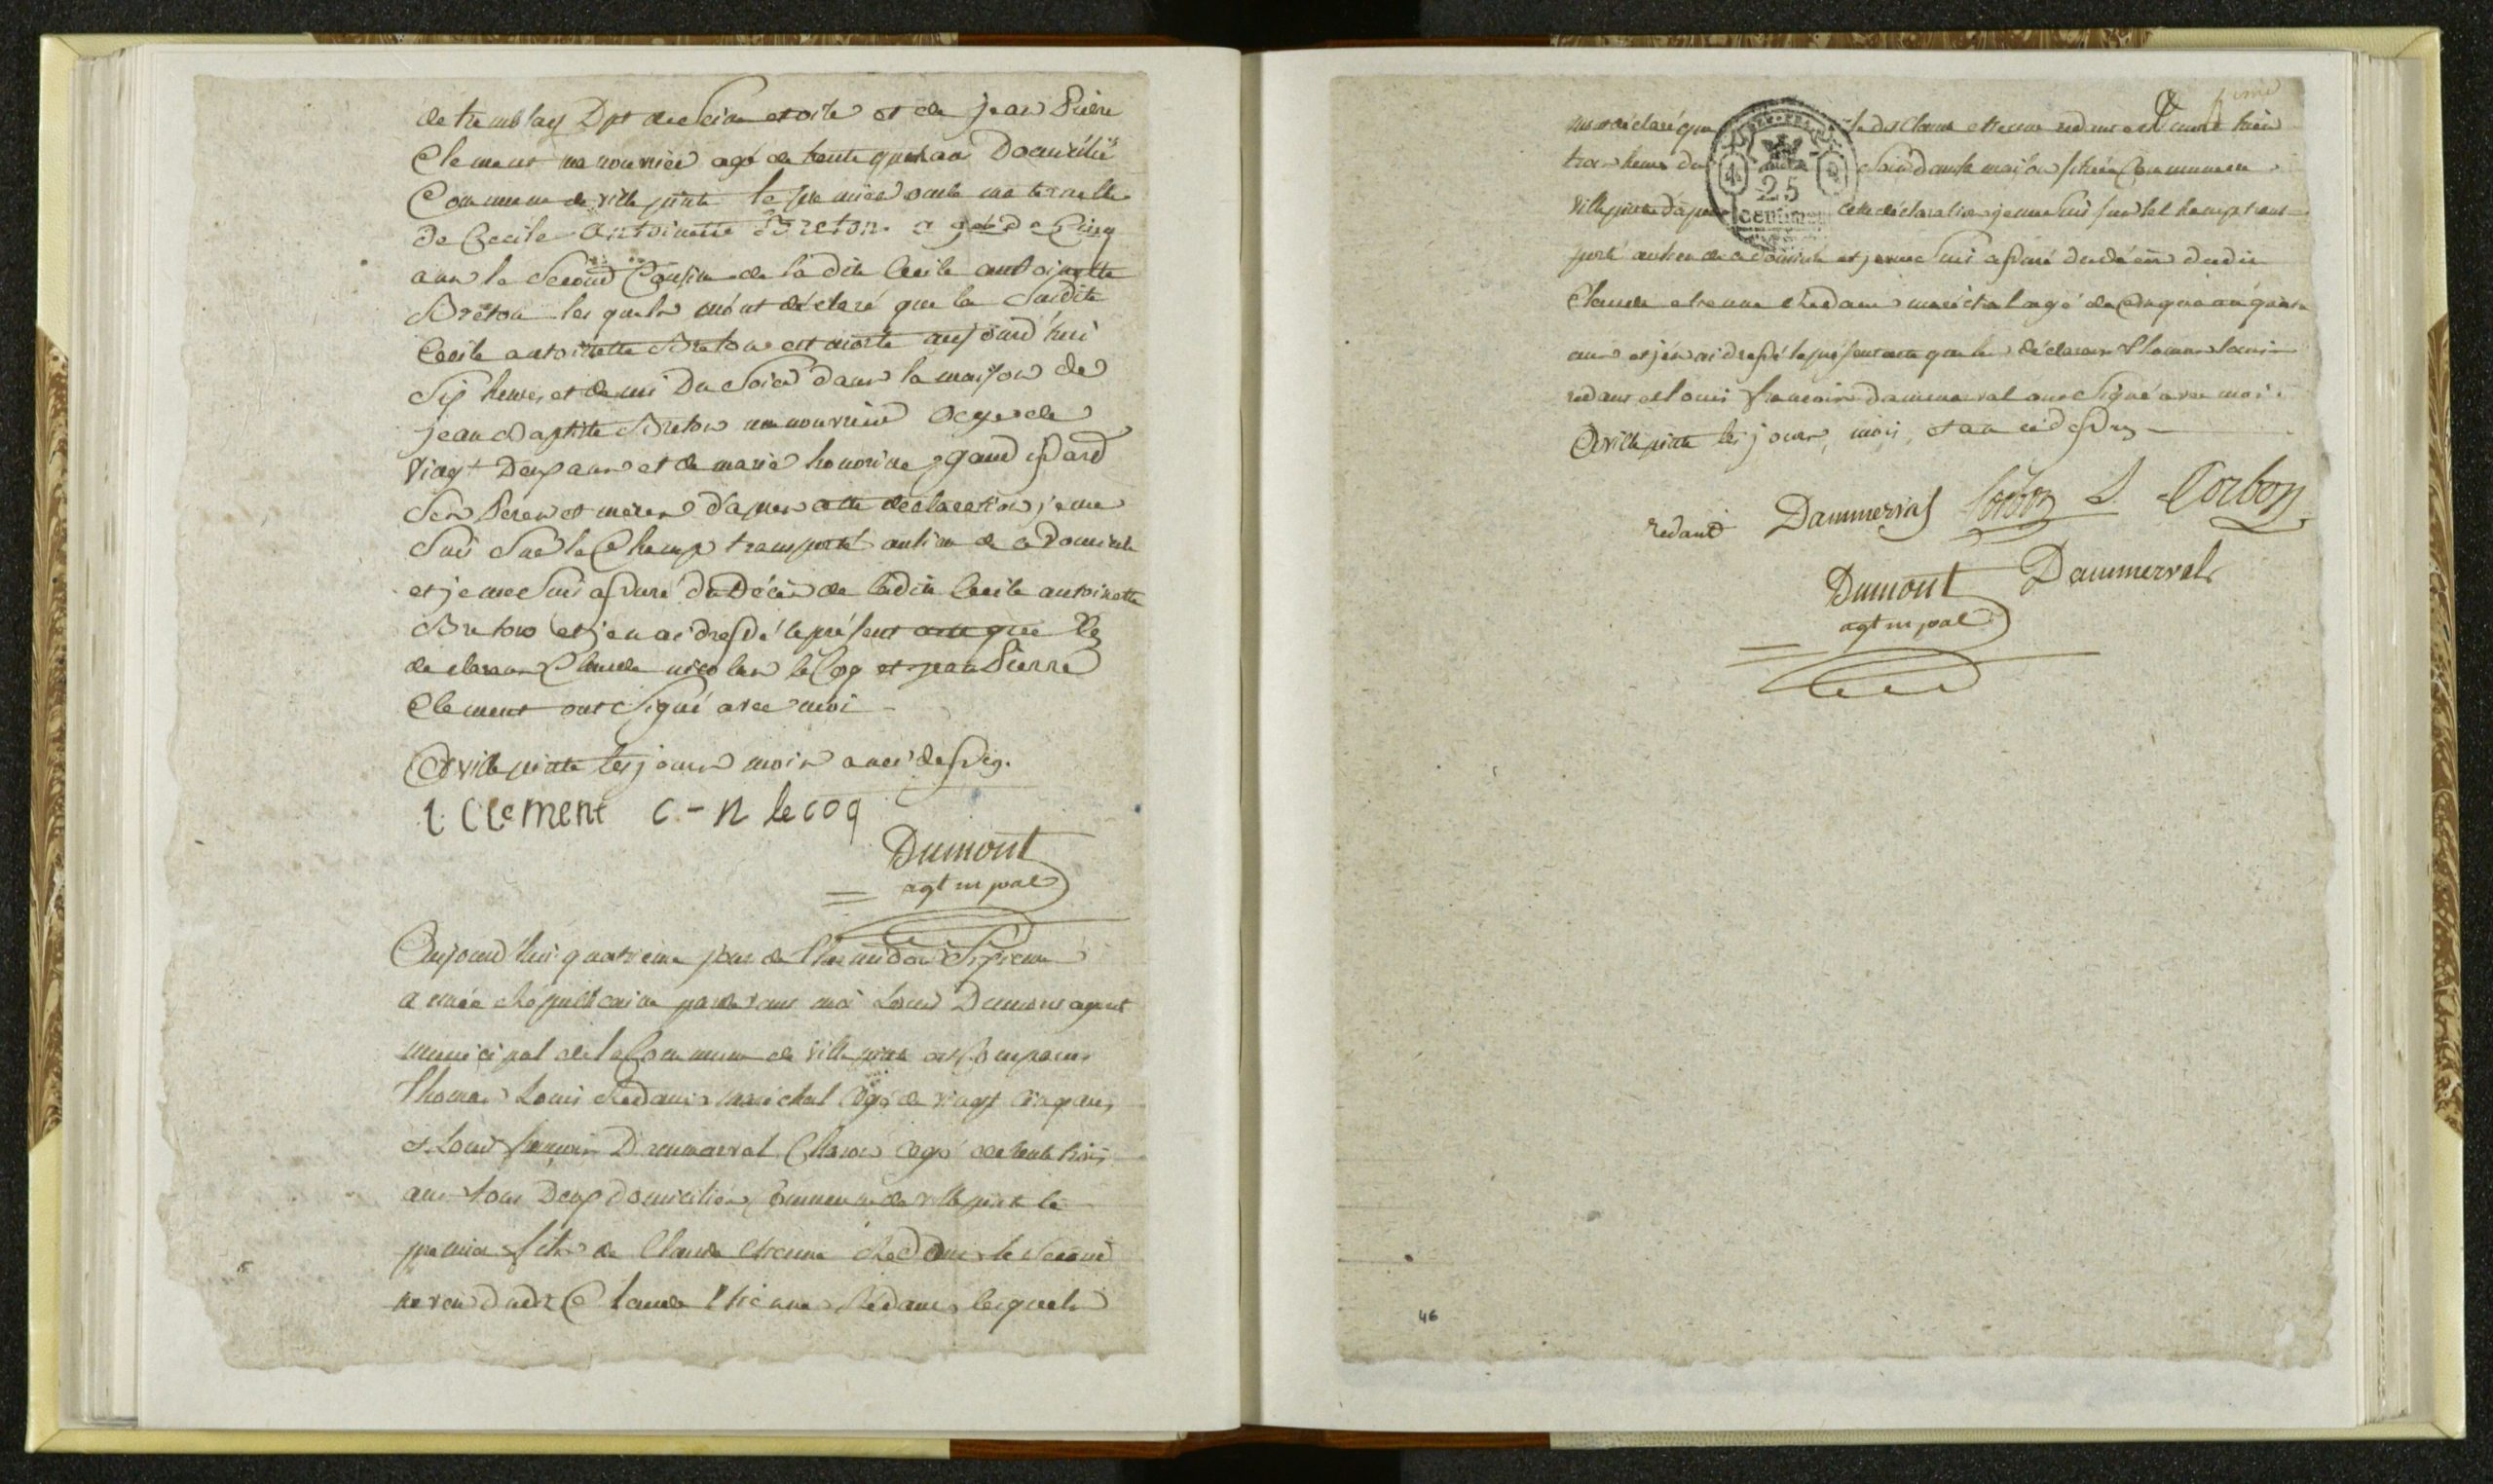 de tremblay Dpt de Seine et oise et de jean Pierre
Clement manouvrier agé de trente quatre ans Domicilié
Commune de villepinte le premier oncle maternelle
de Cecile Antoinette Breton agée de Cinq
ans le Second Cousin de la dite Cecile antoinette
Breton les quels m'ont déclaré que la Susdite
Cecile antoinette Breton est morte aujourd'hui
Six heures et demi Du Soir dans la maison de
jean Baptiste Breton manouvrier age de
Vingt Deux ans et de marie honorine
Ses Perer et merer d'apres cette declaration je me
Suis Sur le Champ transporté au lieu de ce domicile
et je me Suis assuré du Décès de ladite Cecile antoinette
Breton et j'en ai dressé le présent acte que les
declarans Claude nicolas le Coq et jean Pierre
Clement ont Signé avec moi
A villepinte les jours mois an ci dessus.
Clement C - N le coq
Dumont
agt mpal
Aujourd'hui quatrieme jour de Thermidor Sixieme
année Républicaine par devant moi Louis Dumont agent
municipal de la Commune de Villepinte est Comparu
Thomas Louis Redaus maréchal Agé de vingt Cinq ans
et Louis francois Dammerval Charon Agé de trente trois
ans tous Deux Domiciliés Commune de villepinte le
premier fils de Claude Etienne Redaus le Second
neveu dudit Claude Etienne Redaus lesquels
mont déclaré que ledit Claude etienne redaus est mort hier
trois heures du Soir dans la maison située Commune de
villepinte d'après cette déclaration je me Suis sur le champ trans-
porté au lieu de ce domicile et je me Suis assuré du décès dudit
Claude etienne Redaus maréchal agé de Cinquante quatre
ans et j'en ai dressé le présent acte que les déclarans Thomas Louis
redaus et Louis francois Dammerval ont Signé avec moi.
A villepinte les jours, mois, et an ci dessus
Dammerval Corbon L Corbon
Dumont Dammerval
agt mpal
25
centimes
46